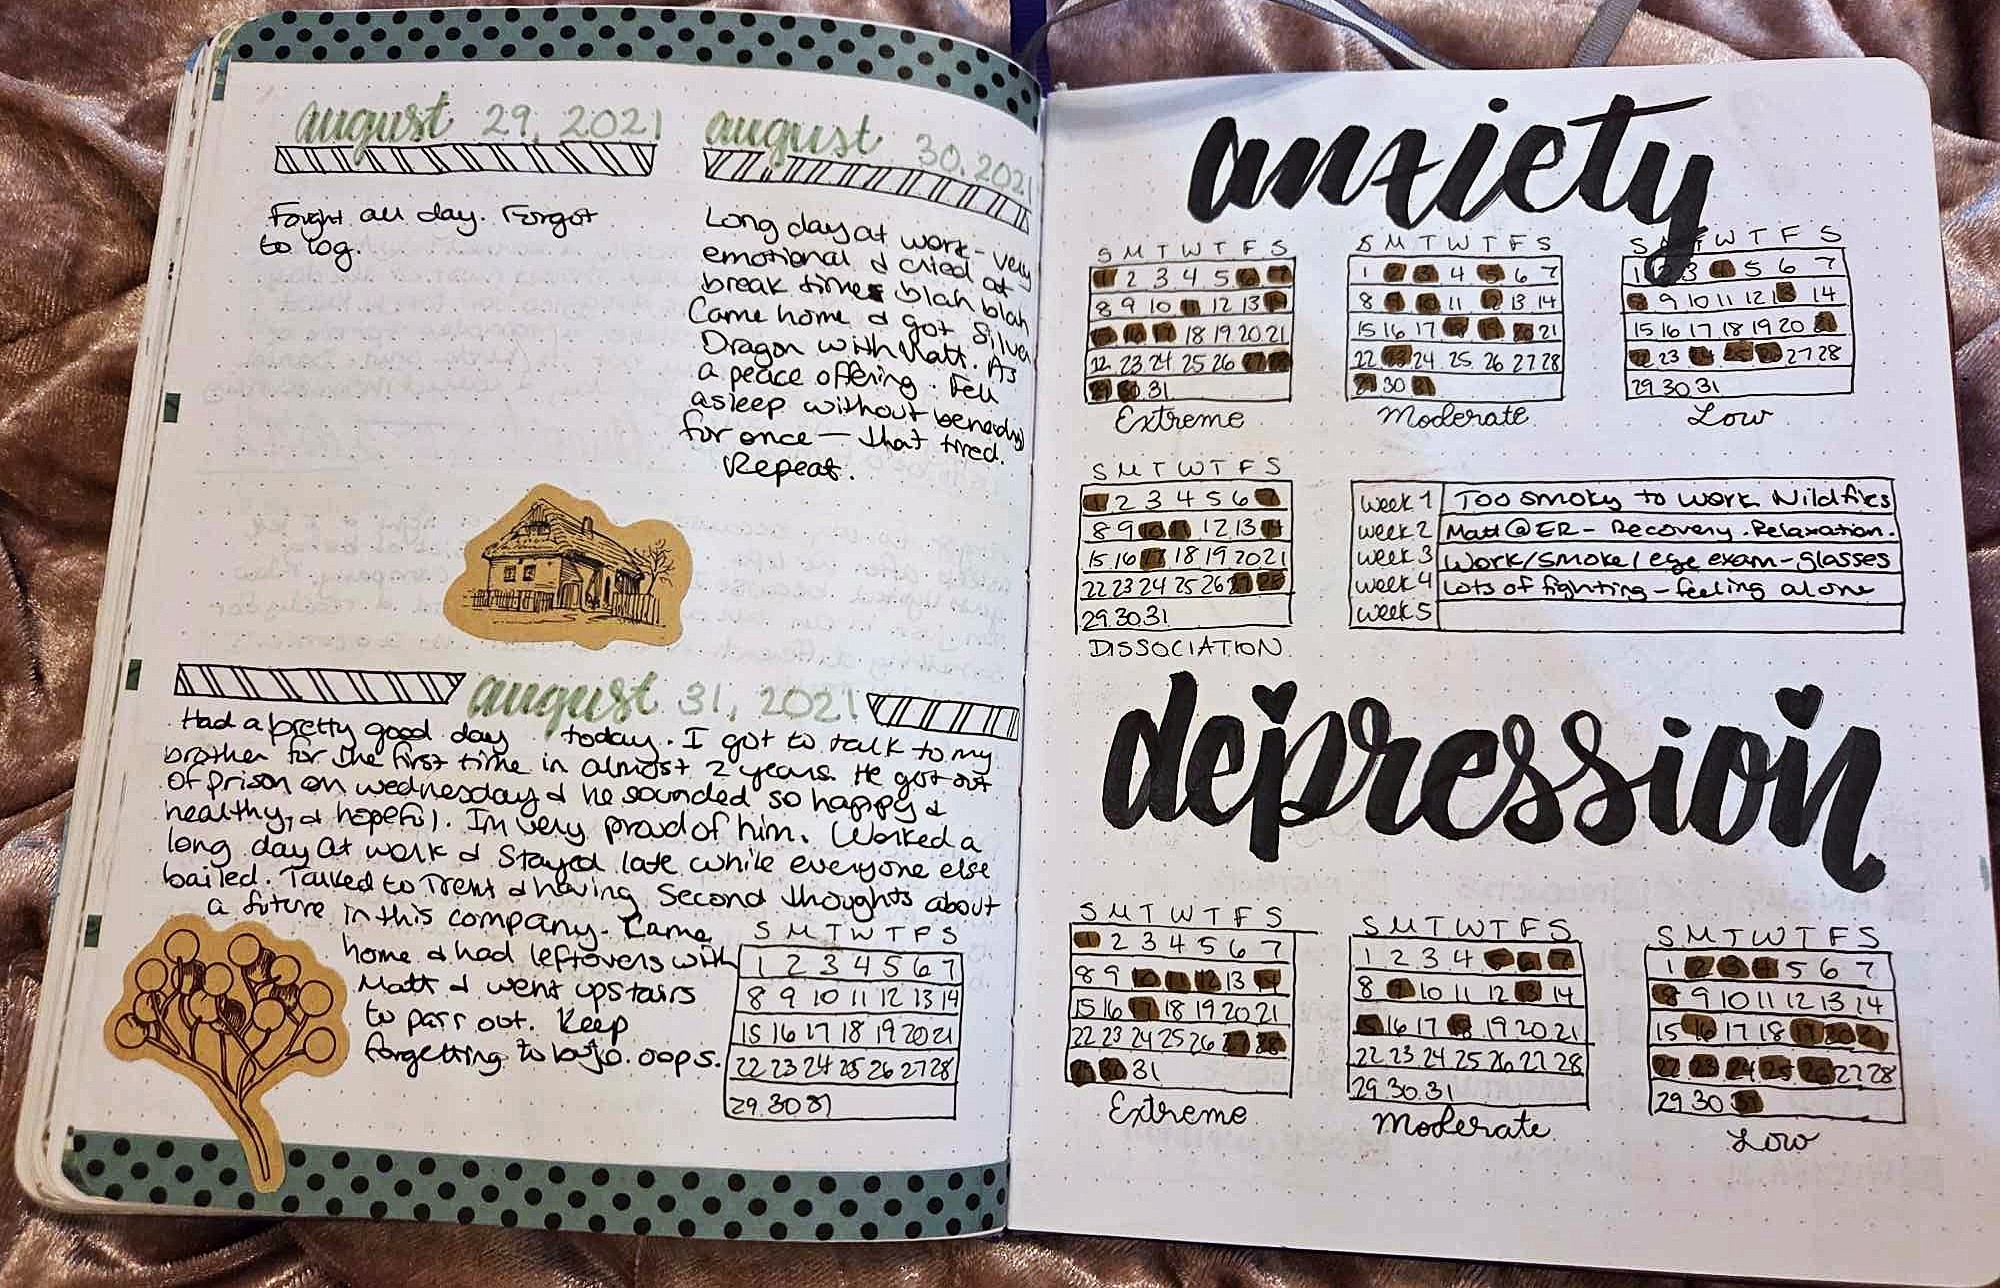 august 29, 2021
Fought all day. Forgot
to log.
august 30. 2021
Long day at work - very
emotional & cried at
break times blah blah
Came home & got Silver
Dragon with Matt. As
a peace offering. Fell
asleep without
for once — that tired.
Repeat.
august 31, 2021
Had a pretty good day today. I got to talk to my
brother for the first time in almost 2 years. He got out
of prison on wednesday & he sounded so happy &
healthy, & hopeful. Im very proud of him. Worked a
long day at work & stayed late while everyone else
bailed. Talked to Trent & having second thoughts about
a future in this company. Came
home & had leftovers with
Matt & went upstairs
to pass out. Keep
forgetting to bujo. oops.
S M T W T F S
1 2 3 4 5 6 7
8 9 10 11 12 13 14
15 16 17 18 19 20 21
22 23 24 25 26 27 28
29.30 31
anxiety
S M T W T F S
2 3 4 5
8 9 10 12 13
18 19 20 21
22 23 24 25 26
31
Extreme
S M T W T F S
1 4 6 7
8 11 13 14
15 16 17 21
22 24 25 26 27 28
30
Moderate
S M T W T F S
1 3 5 6 7
9 10 11 12 14
15 16 17 18 19 20
23 27 28
29 30 31
Low
S M T W T F S
2 3 4 5 6
8 9 12 13
15 16 18 19 20 21
22 23 24 25 26
29.30.31
DISSOCIATION
week 1 Too smoky to work Wildfires
week 2 Matt @ ER - Recovery. Relaxation.
week 3 Work/smoke/eye exam-glasses
week 4 Lots of fighting - feeling alone
week 5
depression
S M T W T F S
2 3 4 5 6 7
8 9 13
15 16 18 19 20 21
22 23 24 25 26
31
Extreme
S M T W T F S
1 2 3 4
8 10 11 12 14
16 17 19 20 21
22 23 24 25 26 27 28
29.30.31
Moderate
S M T W T F S
1 5 6 7
9 10 11 12 13 14
15 17 18
27 28
29 30
Low